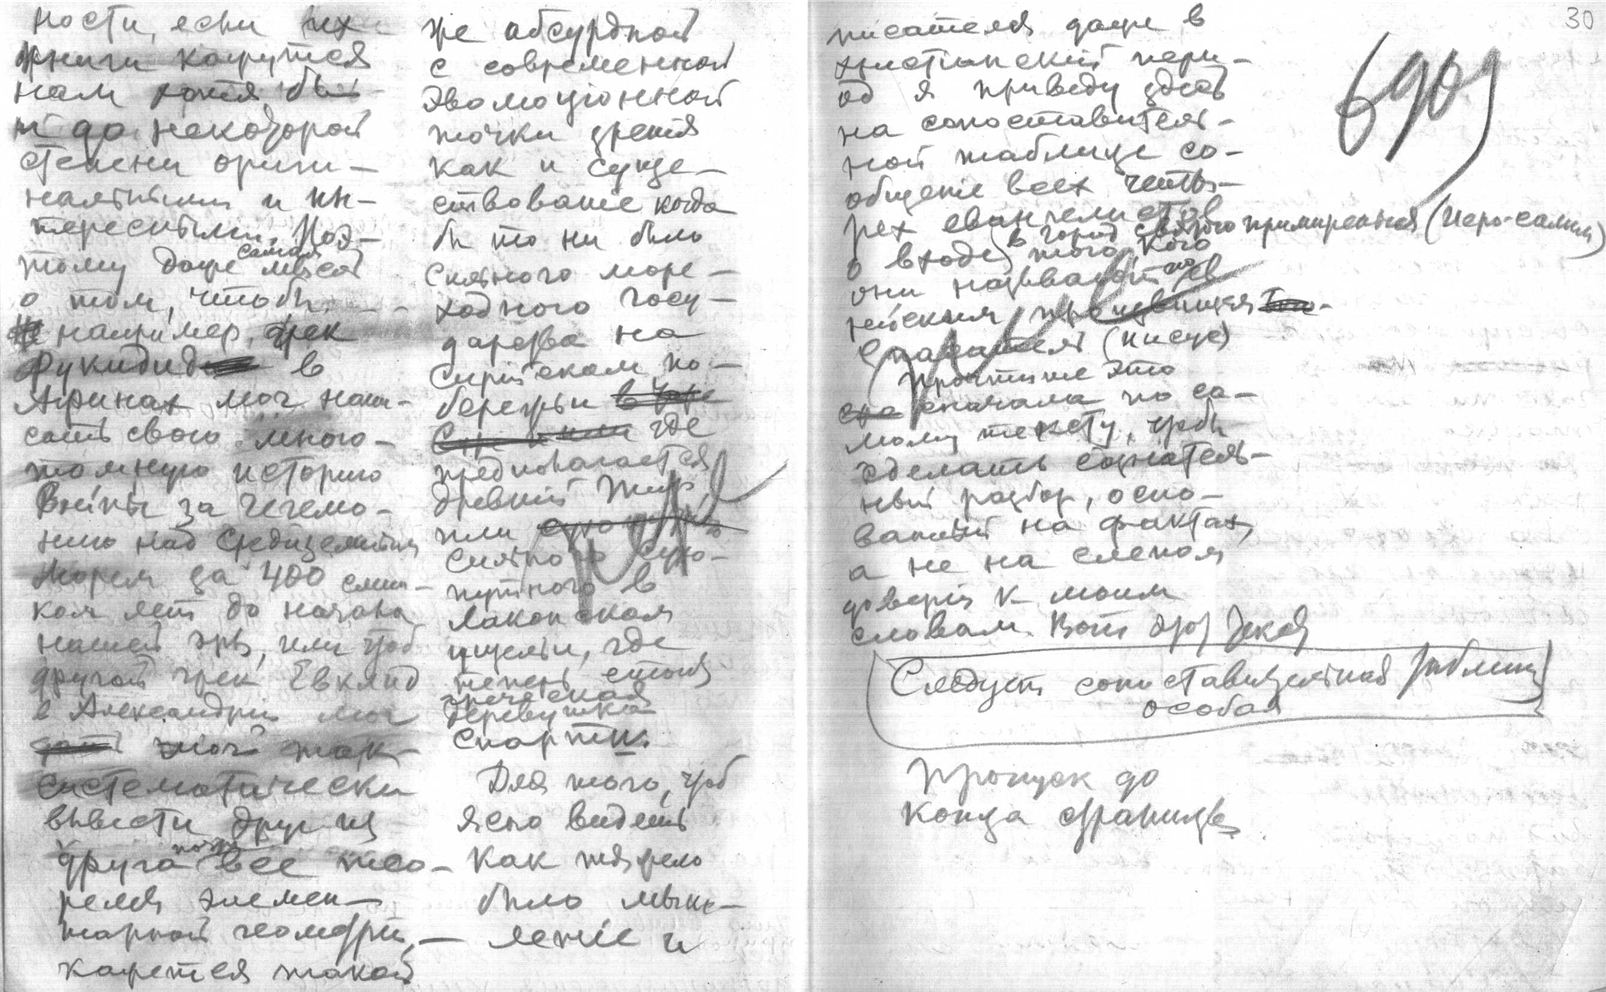 ности, если их
книги кажутся
нам хотя бы
и до некоторой
степени ориги-
нальными и ин-
тересными. Поэ-
тому даже самая мысль
о том, чтобы
например, грек
Фукидид в
Афинах мог напи-
сать свою много-
томную историю
Войны за гегемо-
нию над Средиземным
морем за 400 слиш-
ком лет до начала
нашей эры, или чтоб
другой грек Евклид
в Александрии мог
мог так
систематически
вывести друг из
друга почти все тео-
ремы элемен-
тарной геометрии,
кажется такой
же абсурдной
с современной
эволюционной
точки зрения
как и суще-
ствование когда
бы то ни было
сильного море-
ходного госу-
дарства на
Сирийском по-
бережьи в Тире
где
предполагается
древний Тир,
или
сильного сухо-
путного в
Лаконском
ущельи, где
теперь стоит
греческая
деревушка
Спарти.
Для того, чтоб
ясно видеть
как тяжело
было мыш-
ление и
30
писателя даже в
христианский пери-
од я приведу здесь
на сопоставитель-
ной таблице со-
общение всех четы-
рех евангелистов
о входе в город святого примирения (Иеро-салим)
того, кого
они называют по ев
рейским прозвищем
Спасителя (Иисус)
Прочтите это
сначала по са-
мому тексту, чтобы
сделать сознатель-
ный разбор, осно-
ванный на фактах,
а не на слепом
доверии к моим
словам. Вот этот текст
6909
Следует сопоставительная таблица
особая
Пропуск до
конца страницы